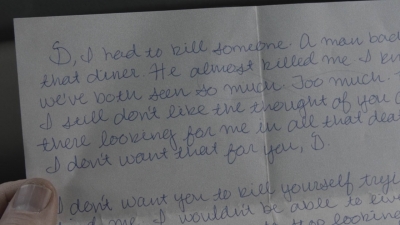 D, I had to kill someone. A man bad
that diner. He almost killed me. I kn
we've both seen so much. Too much.
I still don't like the thought of you o
there looking for me in all that dea
I don't want that for you, D.
I don't want you to kill yourself tryi
me. I wouldn't be able to live
looking